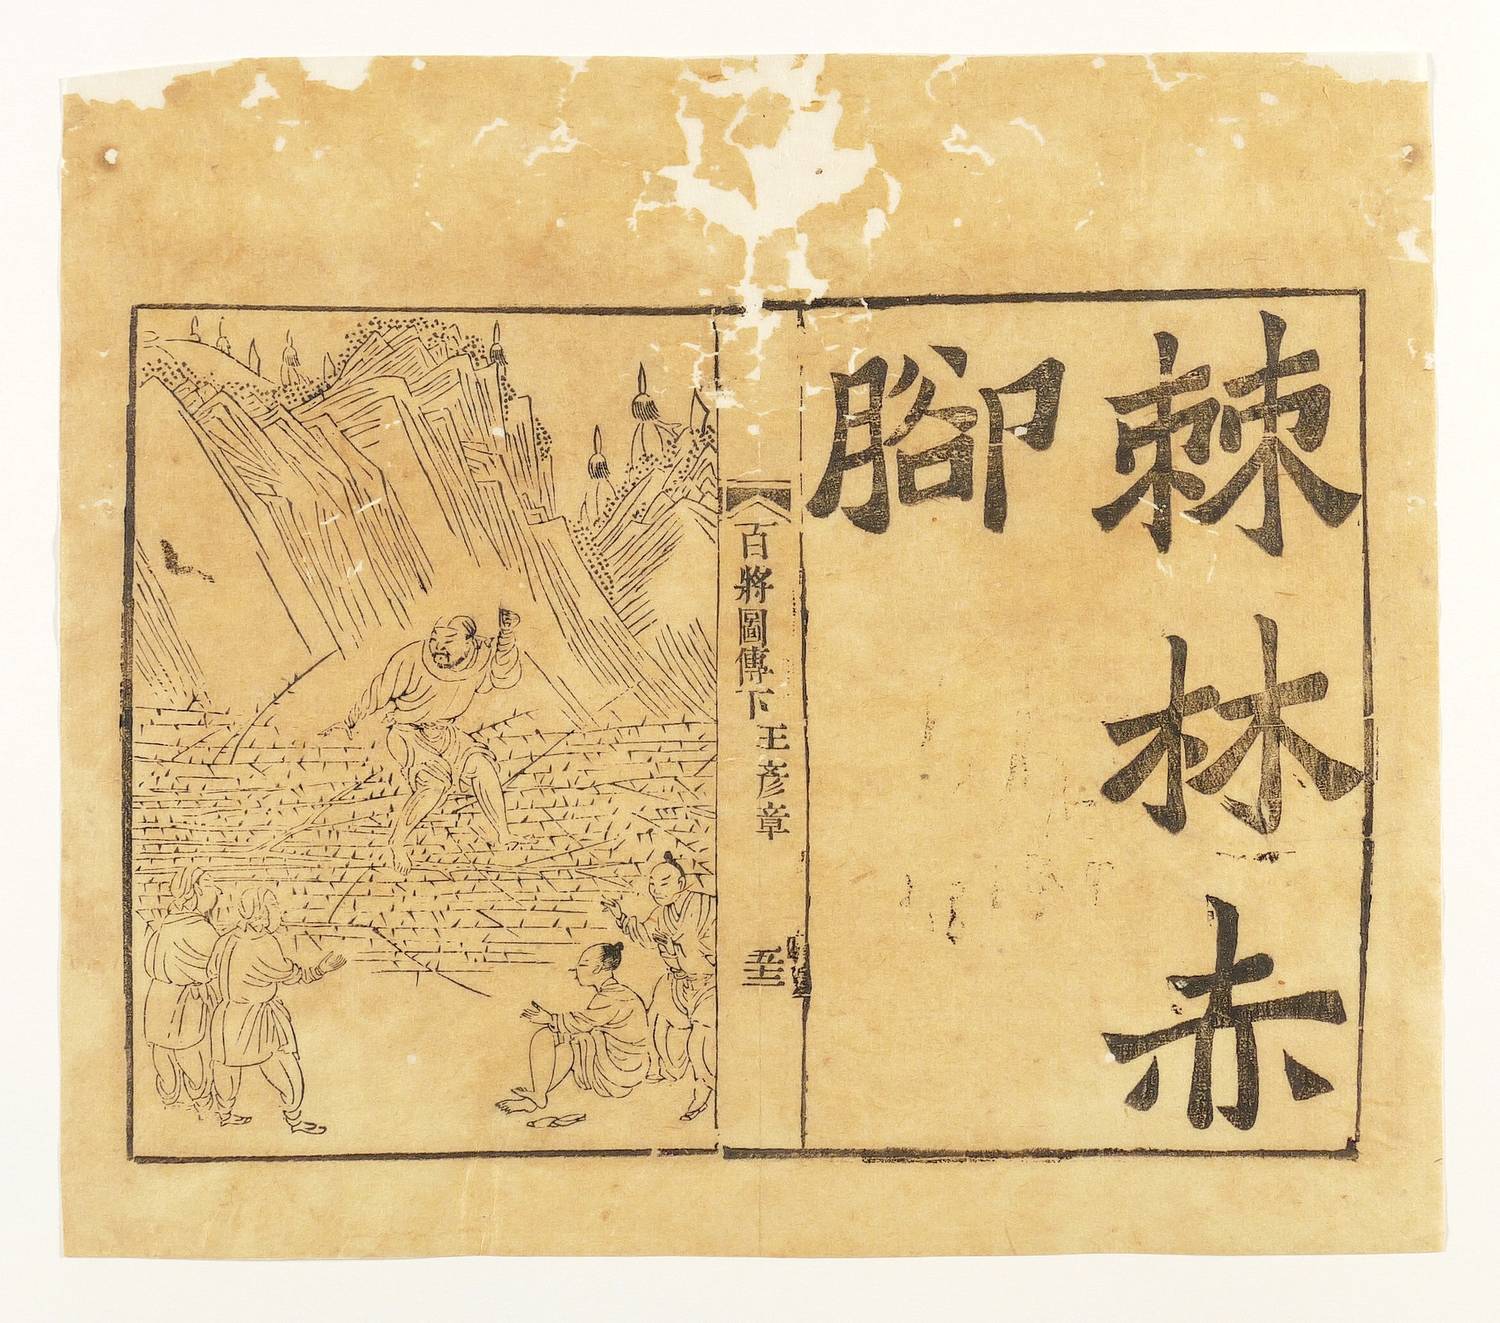 棘林赤
腳
百將圖傳下 王彥章
五十三